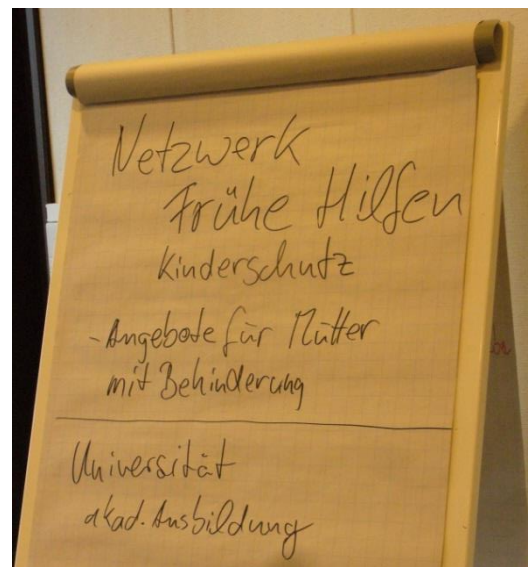 Netzwerk
Frühe Hilfen
Kinderschutz
- Angebote für Mütter
mit Behinderung
Universität
akad. Ausbildung